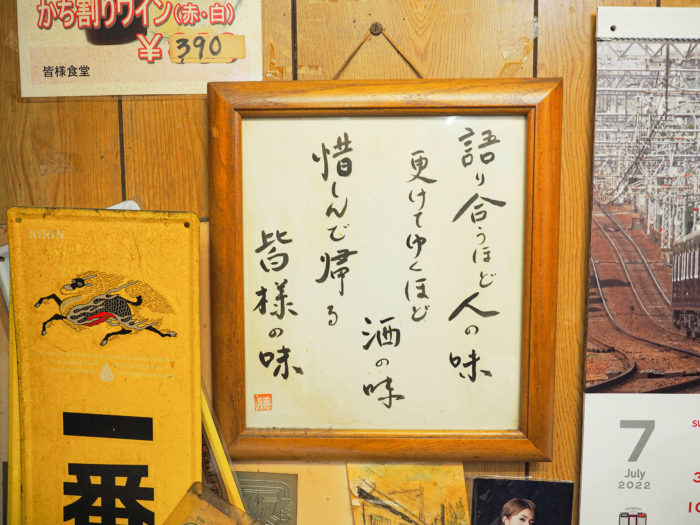 かち割りワイン(赤・白)
¥390
皆様食堂
語り合うほど人の味
更けてゆくほど
酒の味
惜しんで帰る
皆様の味
勝
KIRIN
一番
7
July
2022
SU
3
10